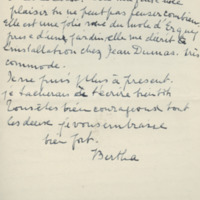 plaisir tu ne peut pas penser combien,
elle est une jolie du mole d'Erquy
pris d'une jardin, elle me décrit
l'installation chez Jean Dumas. très
commode.
Je ne puis plus à present.
je tacherai de t'écrire bientôt
bien courageuse tout
les deux je vous embrasse
bien fort.
Bertha